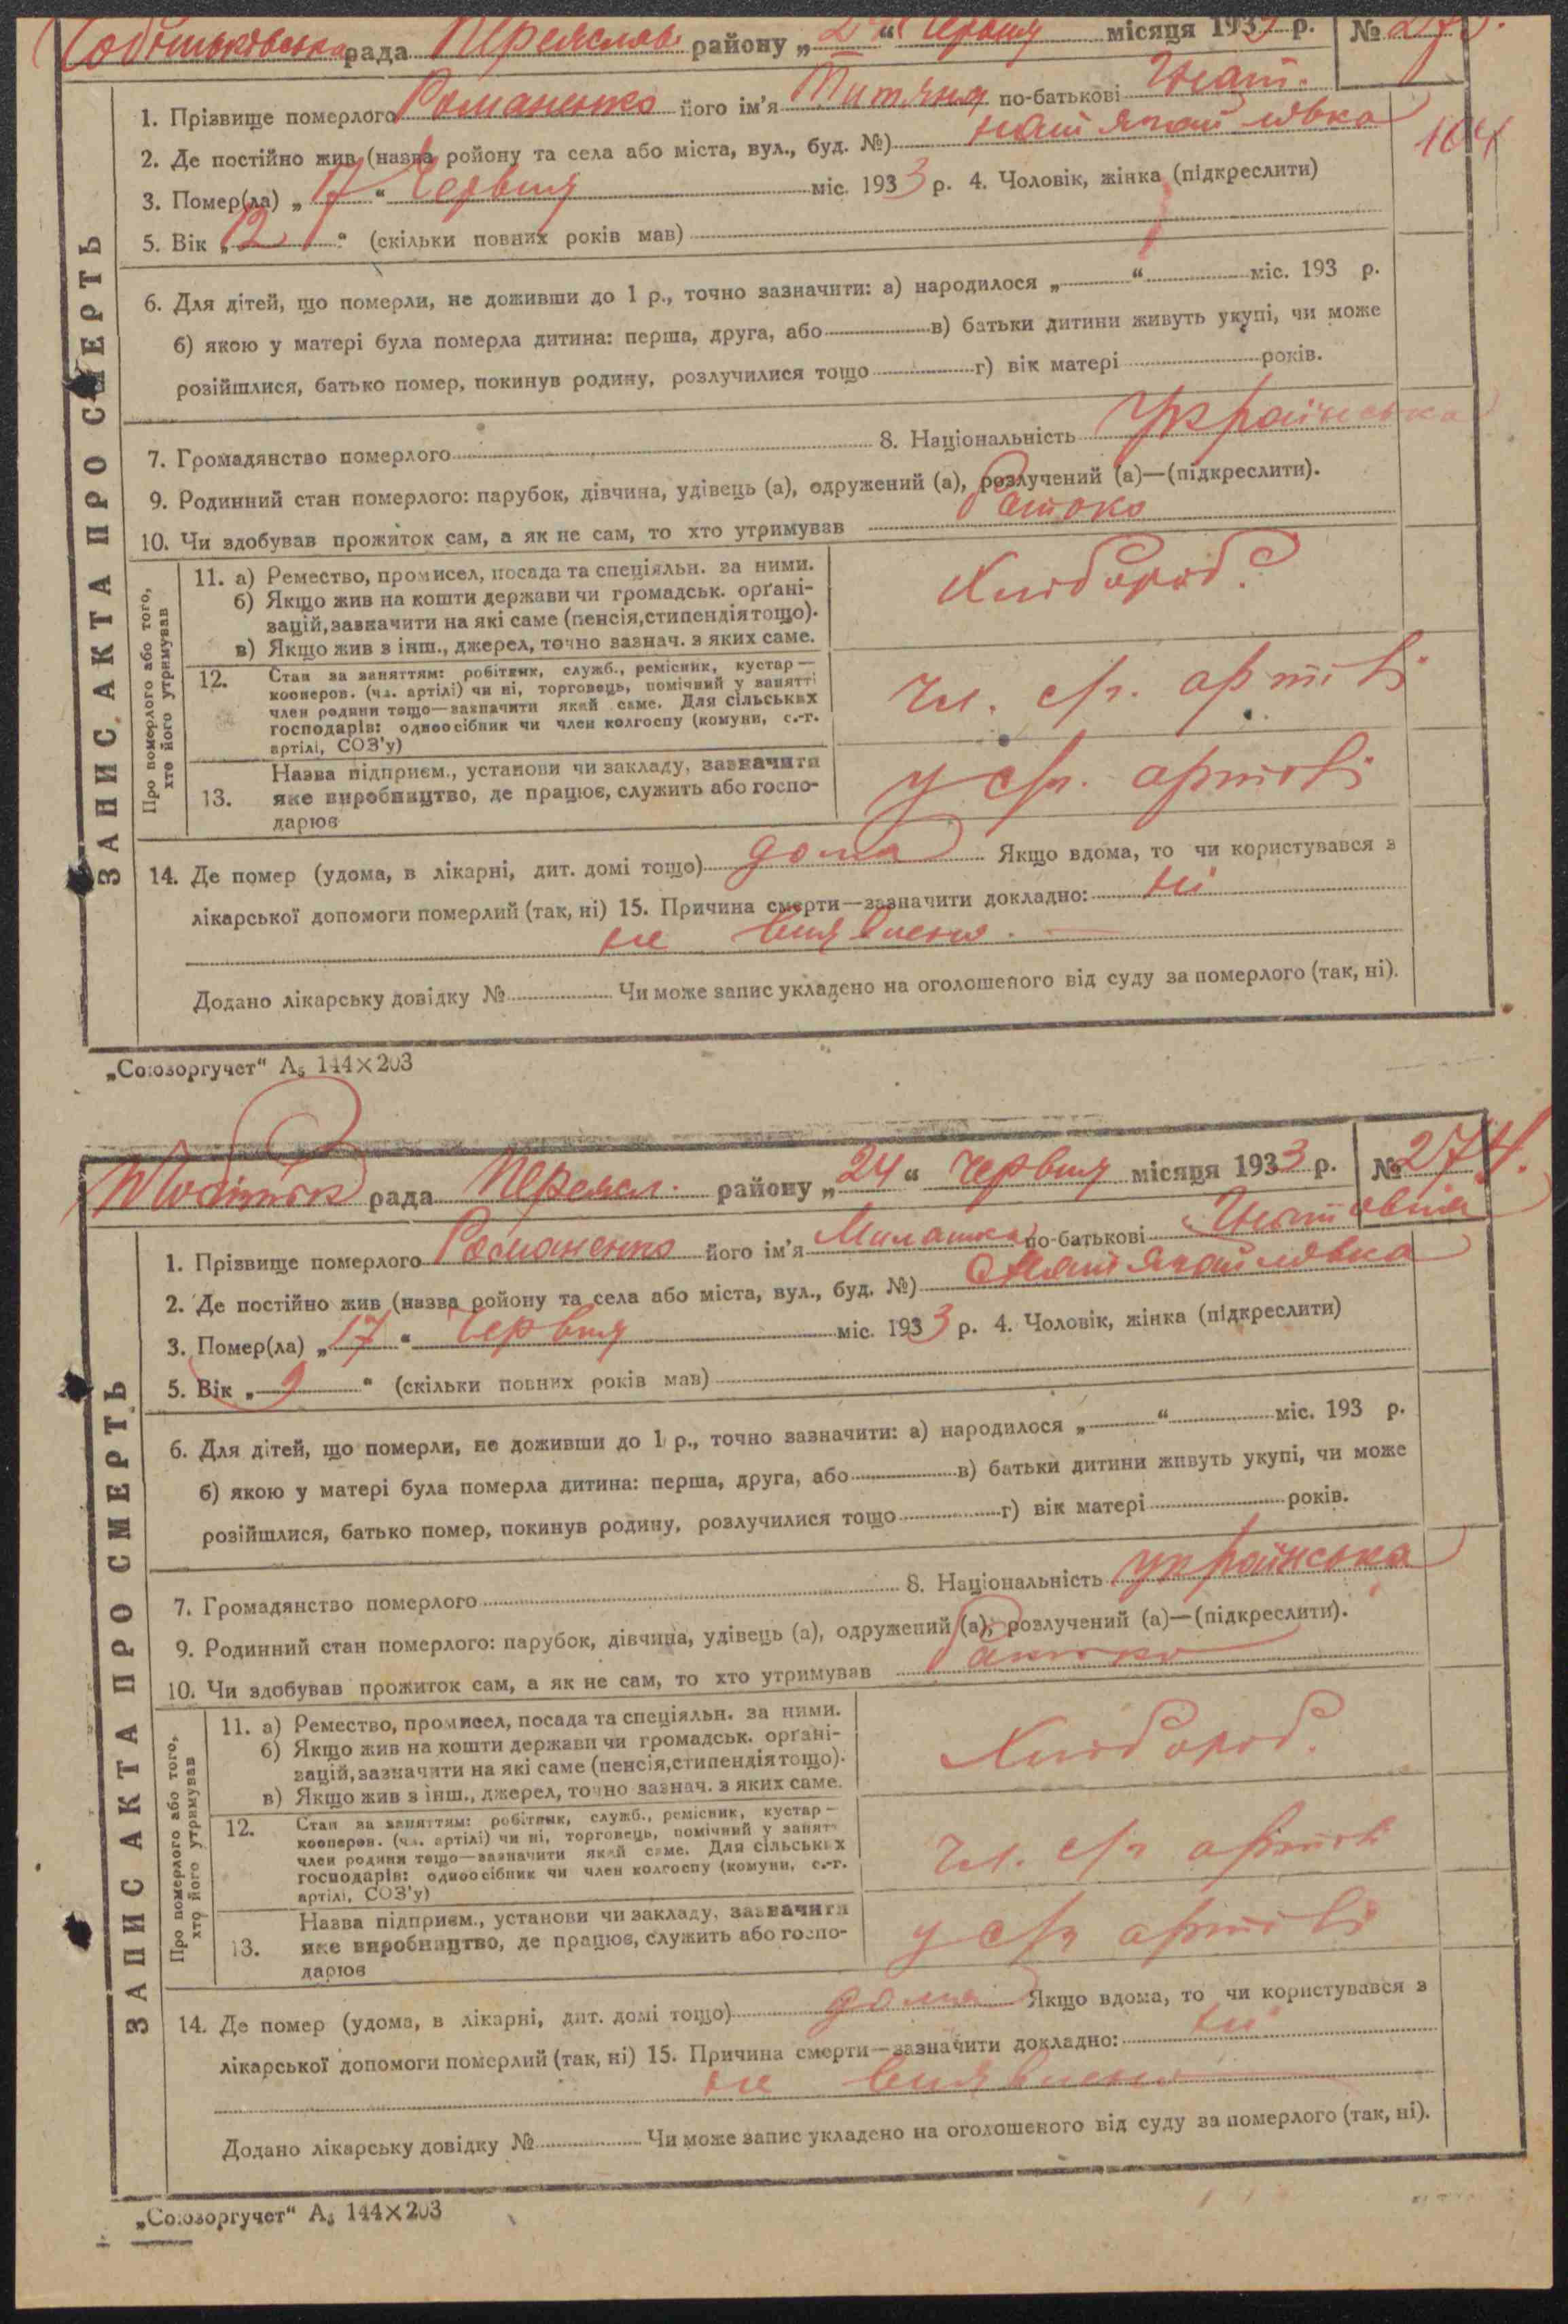 рада Переяслав району „24“ червня місяця 1933 р. № 273.
1. Прізвище померлого Романенко його ім'я Титяна по-батькові Гнат.
2. Де постійно жив (назва ройону та села або міста, вул., буд. №)
104
3. Помер(ла) „17“ червня міс. 1933 р. 4. Чоловік, жінка (підкреслити)
5. Вік „12“ (скільки повних років мав)
6. Для дітей, що померли, не доживши до 1 р., точно зазначити: а) народилося „ “ міс. 193 р.
б) якою у матері була померла дитина: перша, друга, або в) батьки дитини живуть укупі, чи може
розійшлися, батько помер, покинув родину, розлучилися тощо г) вік матері років.
7. Громадянство померлого 8. Національність Українська
9. Родинний стан померлого: парубок, дівчина, удівець (а), одружений (а), розлучений (а)—(підкреслити).
10. Чи здобував прожиток сам, а як не сам, то хто утримував Батько
ЗАПИС АКТА ПРО СМЕРТЬ
Про померлого або того,
хто його утримував
11. а) Ремество, промисел, посада та спеціяльн. за ними.
б) Якщо жив на кошти держави чи громадськ. орґані-
зацій, зазначити на які саме (пенсія, стипендія тощо).
в) Якщо жив з інш., джерел, точно зазнач. з яких саме.
Хлібороб.
12. Стан за заняттям: робітник, служб., ремісник, кустар—
кооперов. (чл. артілі) чи ні, торговець, помічний у занятті
член родини тощо—зазначити який саме. Для сільських
господарів: одноосібник чи член колгоспу (комуни, с.-г.
артілі, СОЗ'у)
чл. с/г. артілі
13. Назва підприєм., установи чи закладу, зазначити
яке виробництво, де працює, служить або госпо-
дарює
у с/г. артілі
14. Де помер (удома, в лікарні, дит. домі тощо) дома Якщо вдома, то чи користувався з
лікарської допомоги померлий (так, ні) 15. Причина смерти—зазначити докладно: ні
не виявлено.
Додано лікарську довідку № Чи може запис укладено на оголошеного від суду за померлого (так, ні).
„Союзоргучет“ А₅ 144×203
рада Переясл. району „24“ червня місяця 1933 р. № 274.
1. Прізвище померлого Романенко його ім'я Милашка по-батькові Гнатовна
2. Де постійно жив (назва ройону та села або міста, вул., буд. №)
3. Помер(ла) „17“ червня міс. 1933 р. 4. Чоловік, жінка (підкреслити)
5. Вік „9“ (скільки повних років мав)
6. Для дітей, що померли, не доживши до 1 р., точно зазначити: а) народилося „ “ міс. 193 р.
б) якою у матері була померла дитина: перша, друга, або в) батьки дитини живуть укупі, чи може
розійшлися, батько помер, покинув родину, розлучилися тощо г) вік матері років.
7. Громадянство померлого 8. Національність українська
9. Родинний стан померлого: парубок, дівчина, удівець (а), одружений (а), розлучений (а)—(підкреслити).
10. Чи здобував прожиток сам, а як не сам, то хто утримував Батько
ЗАПИС АКТА ПРО СМЕРТЬ
Про померлого або того,
хто його утримував
11. а) Ремество, промисел, посада та спеціяльн. за ними.
б) Якщо жив на кошти держави чи громадськ. орґані-
зацій, зазначити на які саме (пенсія, стипендія тощо).
в) Якщо жив з інш., джерел, точно зазнач. з яких саме.
Хлібороб.
12. Стан за заняттям: робітник, служб., ремісник, кустар—
кооперов. (чл. артілі) чи ні, торговець, помічний у занятт
член родини тощо—зазначити який саме. Для сільських
господарів: одноосібник чи член колгоспу (комуни, с.-г.
артілі, СОЗ'у)
чл. с/г артілі
13. Назва підприєм., установи чи закладу, зазначити
яке виробництво, де працює, служить або госпо-
дарює
у с/г артілі
14. Де помер (удома, в лікарні, дит. домі тощо) дома Якщо вдома, то чи користувався з
лікарської допомоги померлий (так, ні) 15. Причина смерти—зазначити докладно: ні
не виявлено
Додано лікарську довідку № Чи може запис укладено на оголошеного від суду за померлого (так, ні).
„Союзоргучет“ А₅ 144×203